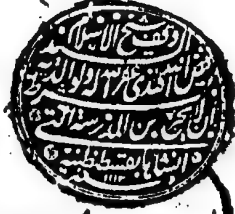 وقف شيخ الاسلام السيد
فيض الله افندى غفر الله له ولوالديه
بشرط ان لا يخرج من المدرسة التى
انشاها بقسطنطنية
١١١٣